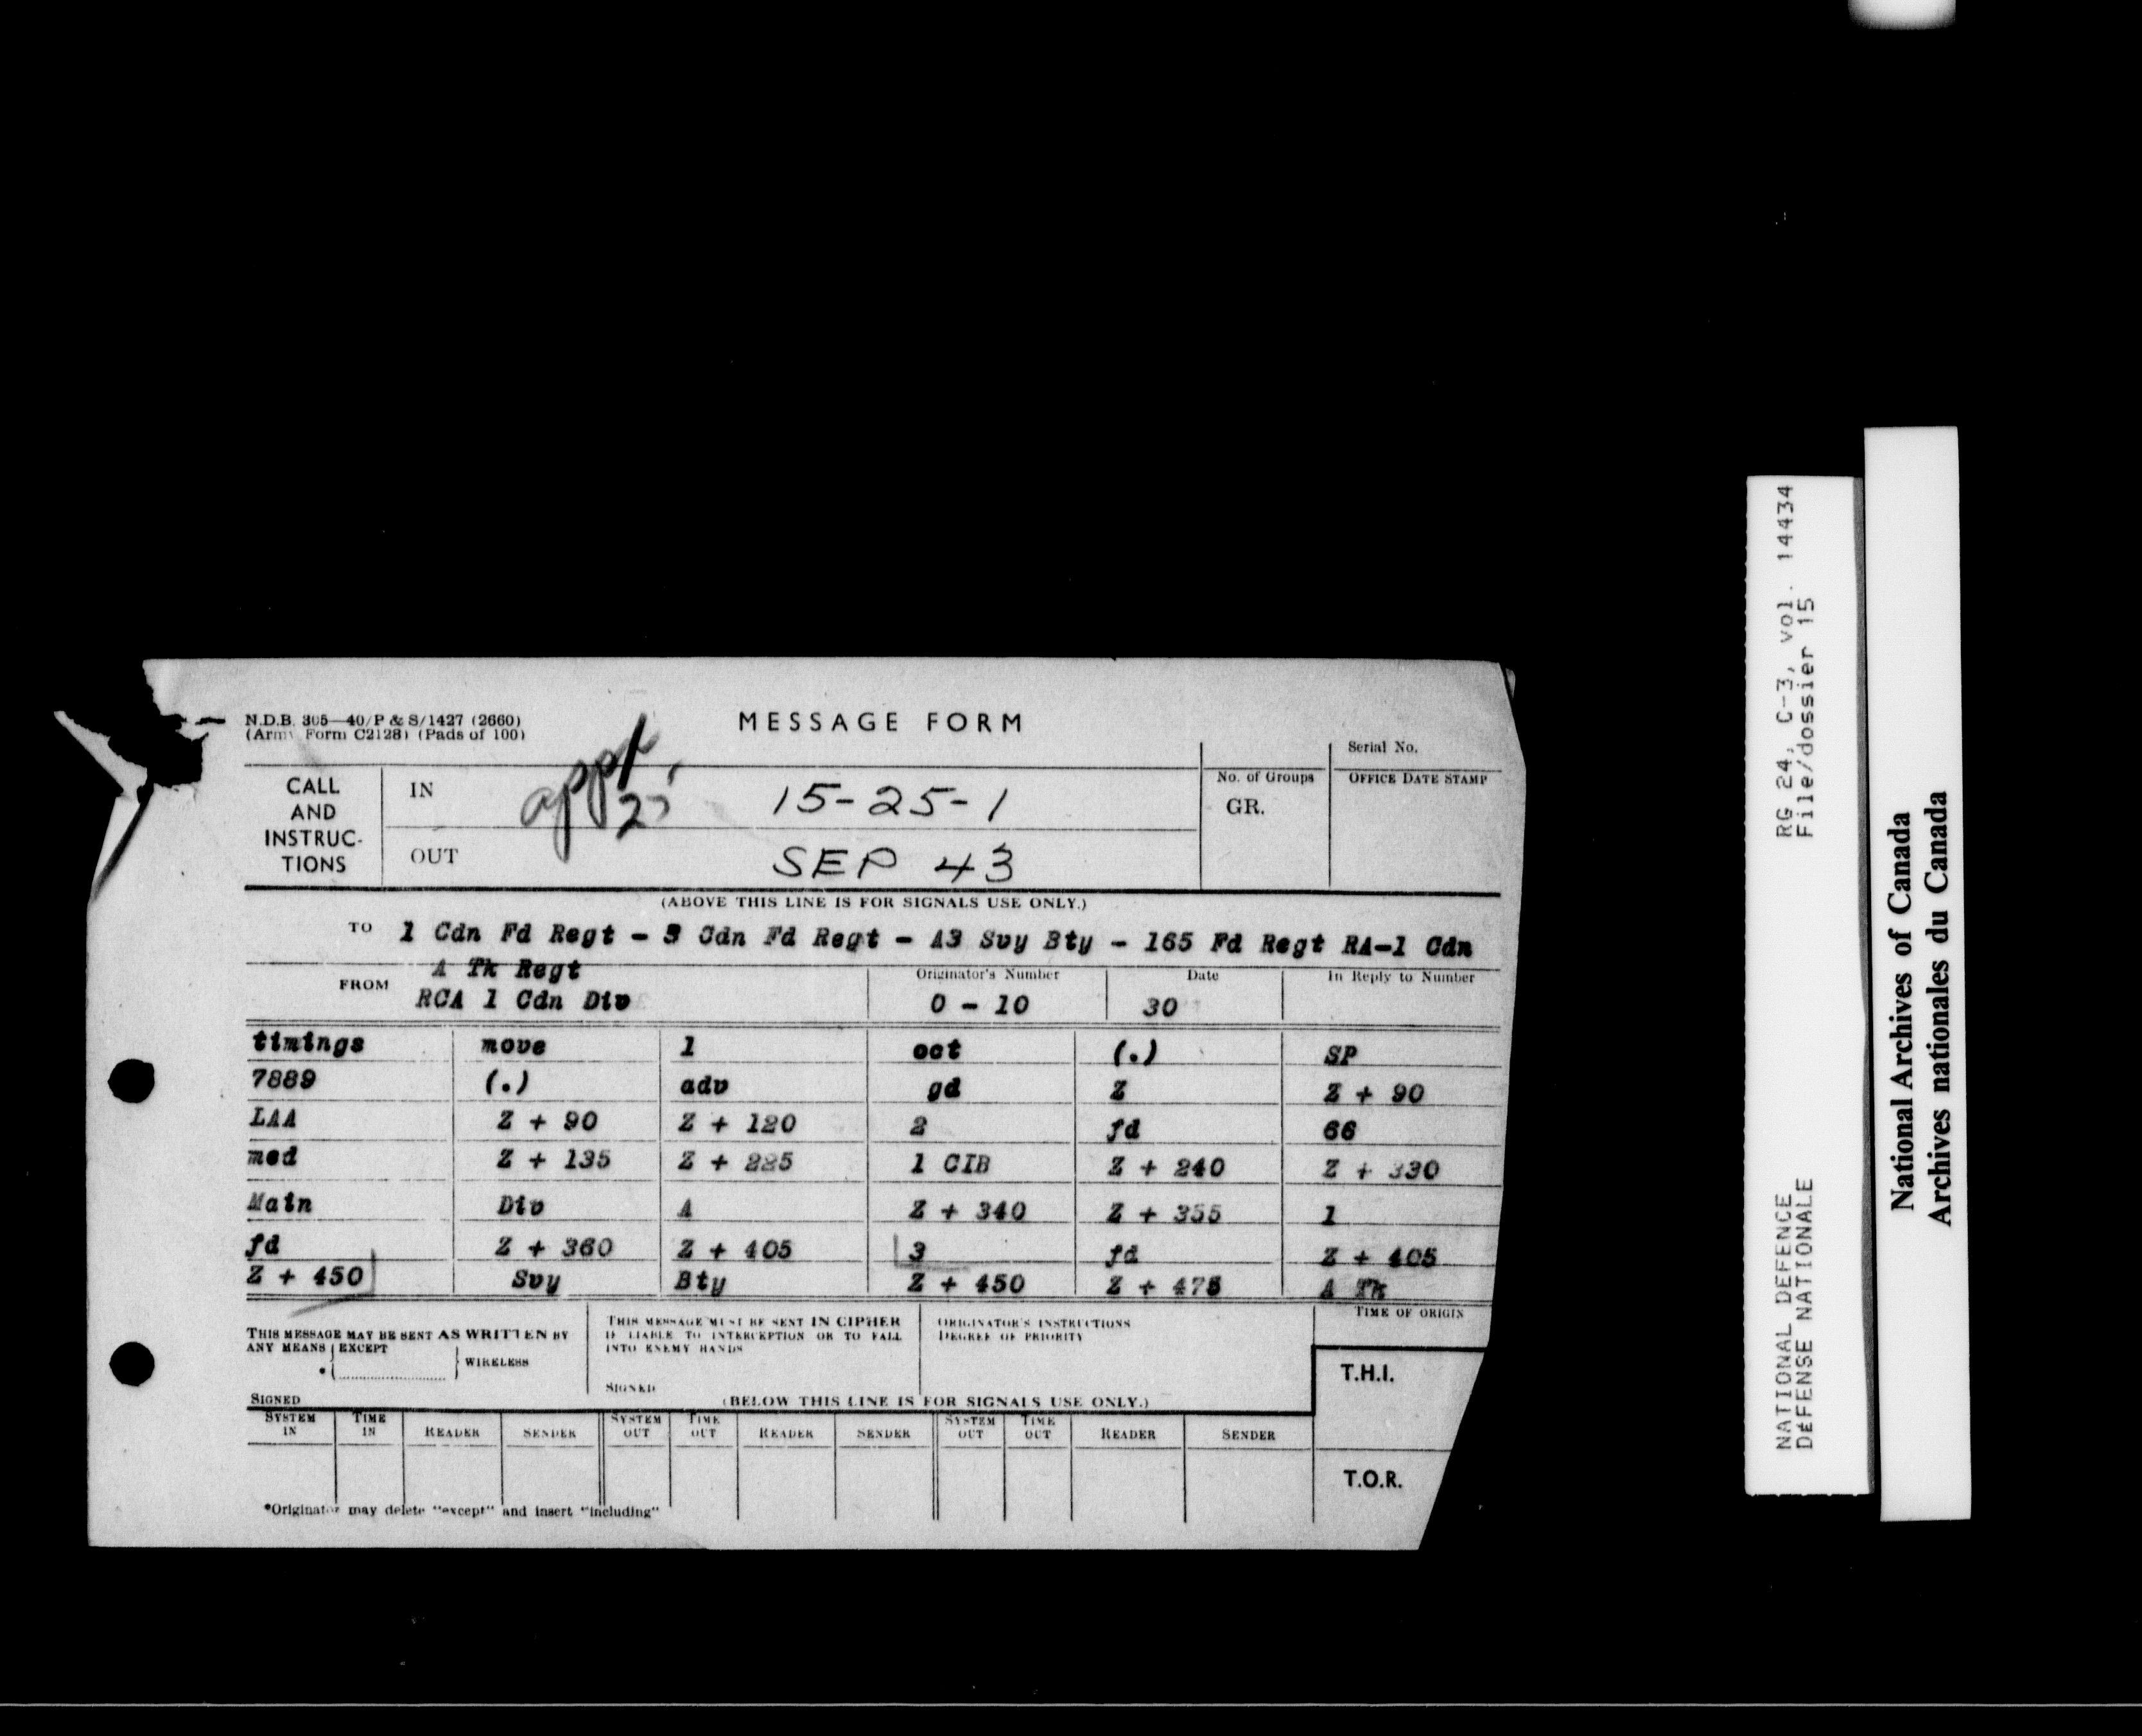 N.D.B. 305—40/P & S/1427 (2660)
(Army Form C2128) (Pads of 100)
MESSAGE FORM
Serial No.
CALL AND INSTRUC-TIONS
IN
appx 25
15-25-1
No. of Groups
GR.
OFFICE DATE STAMP
OUT
SEP 43
(ABOVE THIS LINE IS FOR SIGNALS USE ONLY.)
TO 1 Cdn Fd Regt - 3 Cdn Fd Regt - A3 Svy Bty - 165 Fd Regt RA-1 Cdn
A Tk Regt
FROM RCA 1 Cdn Div
Originator's Number
0 - 10
Date
30
In Reply to Number
timings move 1 oct (.) SP
7889 (.) adv gd Z Z + 90
LAA Z + 90 Z + 120 2 fd 66
med Z + 135 Z + 225 1 CIB Z + 240 Z + 330
Main Div A Z + 340 Z + 355 1
fd Z + 360 Z + 405 3 fd Z + 405
Z + 450 Svy Bty Z + 450 Z + 475 A Tk
THIS MESSAGE MAY BE SENT AS WRITTEN BY
ANY MEANS EXCEPT
* WIRELESS
SIGNED
THIS MESSAGE MUST BE SENT IN CIPHER
IF LIABLE TO INTERCEPTION OR TO FALL
INTO ENEMY HANDS
SIGNED
ORIGINATOR'S INSTRUCTIONS
DEGREE OF PRIORITY
TIME OF ORIGIN
T.H.I.
(BELOW THIS LINE IS FOR SIGNALS USE ONLY.)
SYSTEM IN TIME IN READER SENDER SYSTEM OUT TIME OUT READER SENDER SYSTEM OUT TIME OUT READER SENDER
T.O.R.
*Originator may delete "except" and insert "including"
RG 24, C-3, vol. 14434
File/dossier 15
NATIONAL DEFENCE
DÉFENSE NATIONALE
National Archives of Canada
Archives nationales du Canada